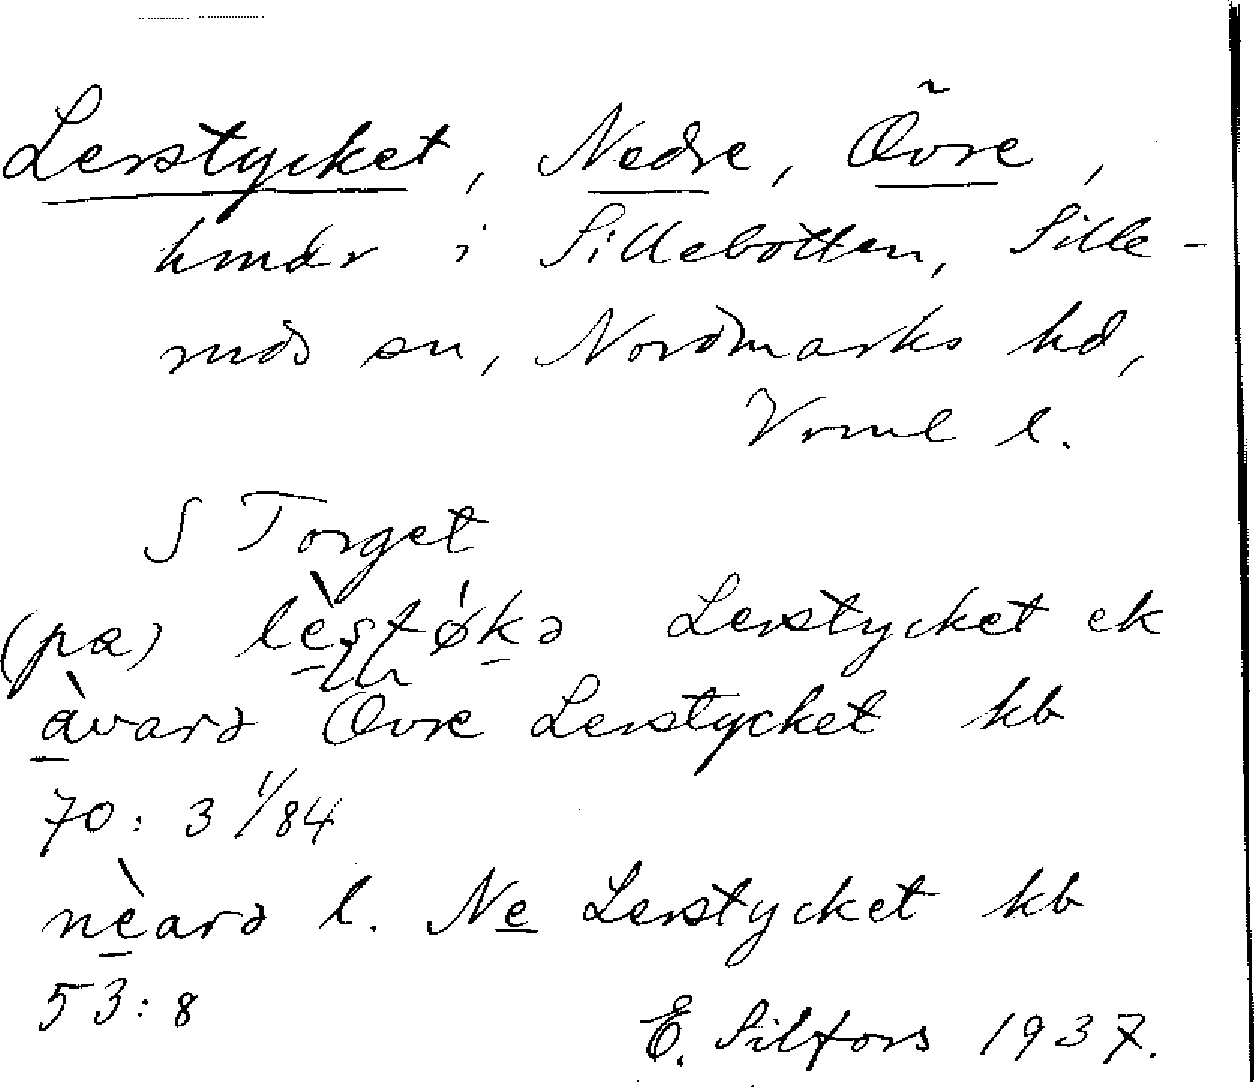 Lerstycket, Nedre, Övre,
hmdr i Sillebotten, Sille-
ruds sn, Nordmarks hd,
Vrml l.
S Torget
(pa) lèstǿkə Lerstycket ek
àvarə Övre Lerstycket kb
70:3 1/84
nèarə l. Ne Lerstycket kb
53:8
E. Silfors 1937.